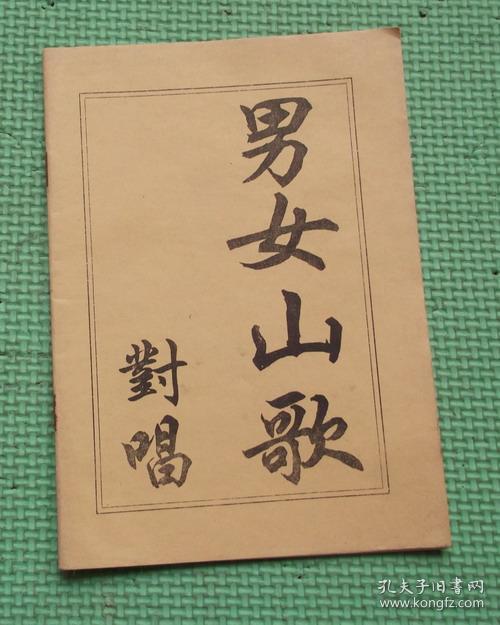 男女山歌
對唱
孔夫子旧书网
www.kongfz.com